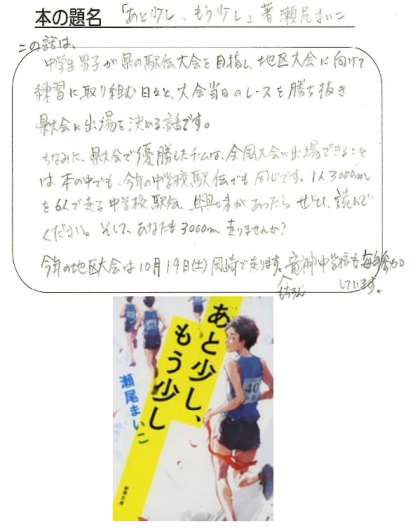 本の題名 「あと少し、もう少し」著 瀬尾まいこ
この話は、
中学生男子が県の駅伝大会を目指し、地区大会に向けて
練習に取り組む日々と、大会当日のレースを勝ち抜き
県大会に出場を決める話です。
ちなみに、県大会で優勝したチームは、全国大会に出場できることは
は本の中でも、今年の中学校駅伝でも同じです。1人3000m
を6人で走る中学校駅伝、興味があったらぜひ、読んで
ください。そして、あなたも3000m走りませんか?
今年の地区大会は10月19日(土)岡崎で走ります。竜神中学校も
もちろん
しています。
あと少し、
もう少し
瀬尾まいこ
新潮文庫
40